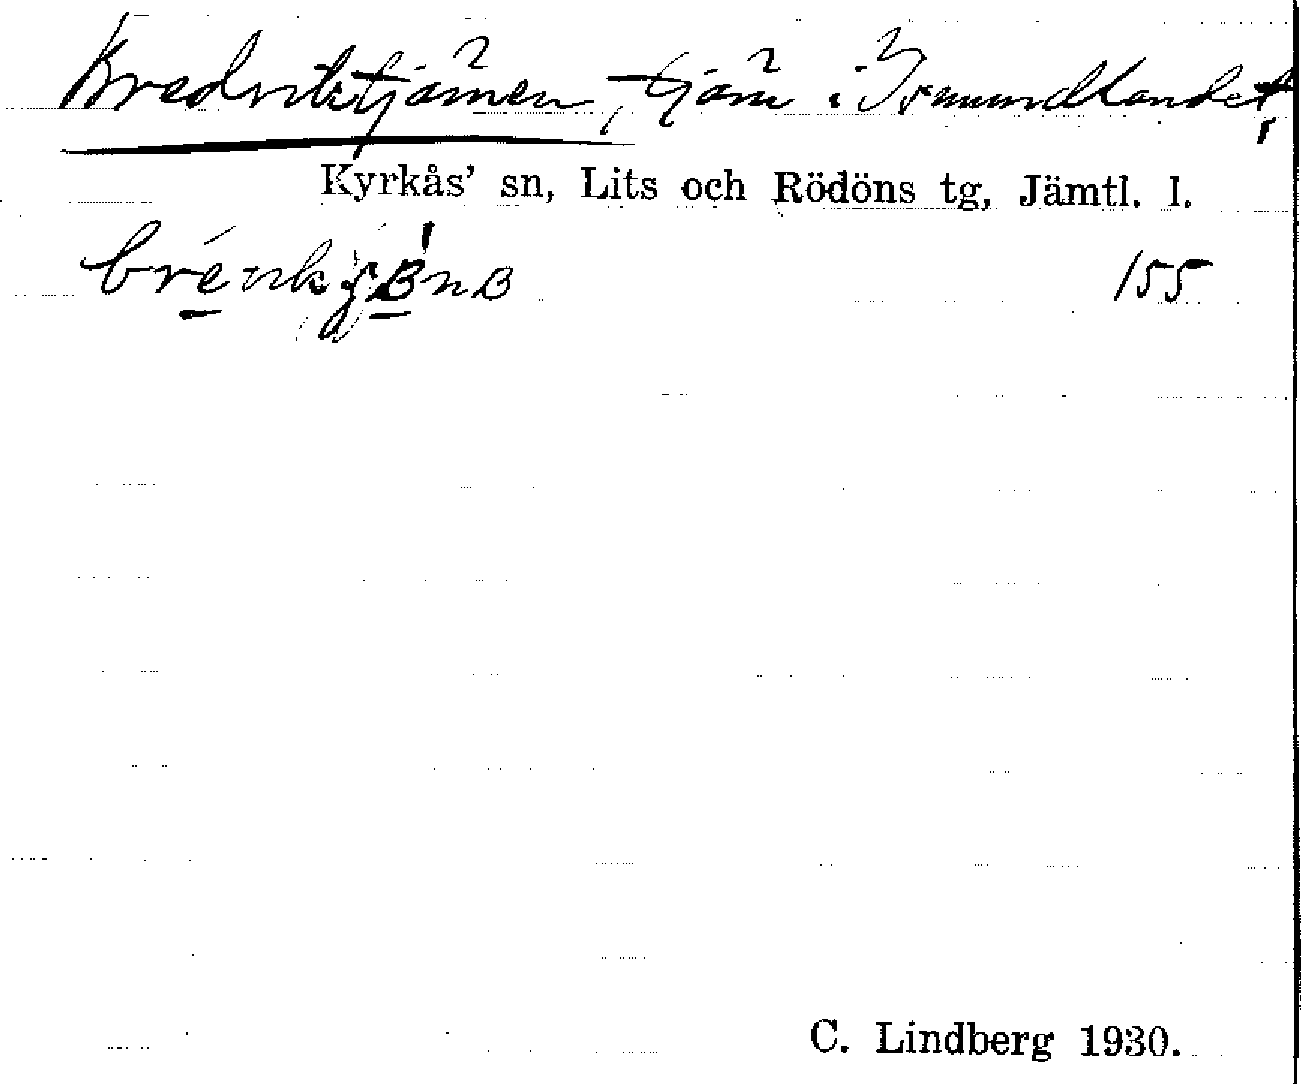 Bredvikstjärnen, tjärn i Ismundlandet,
Kyrkås' sn, Lits och Rödöns tg, Jämtl. l.
155
C. Lindberg 1930.